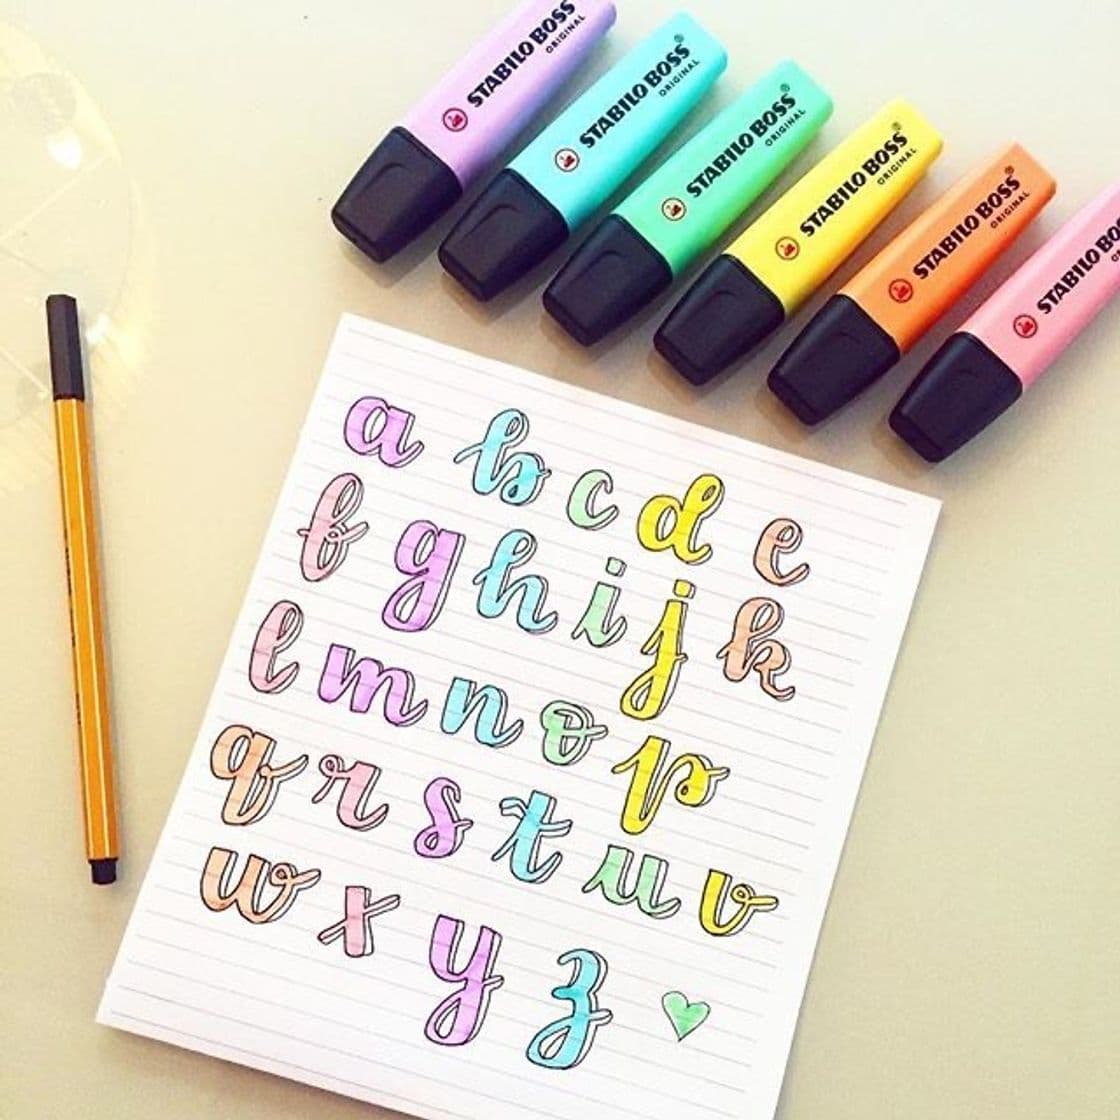 STABILO BOSS ORIGINAL
STABILO BOSS ORIGINAL
STABILO BOSS ORIGINAL
STABILO BOSS ORIGINAL
STABILO BOSS ORIGINAL
STABILO BOSS
a b c d e
f g h i j k
l m n o p
q r s t u v
w x y z